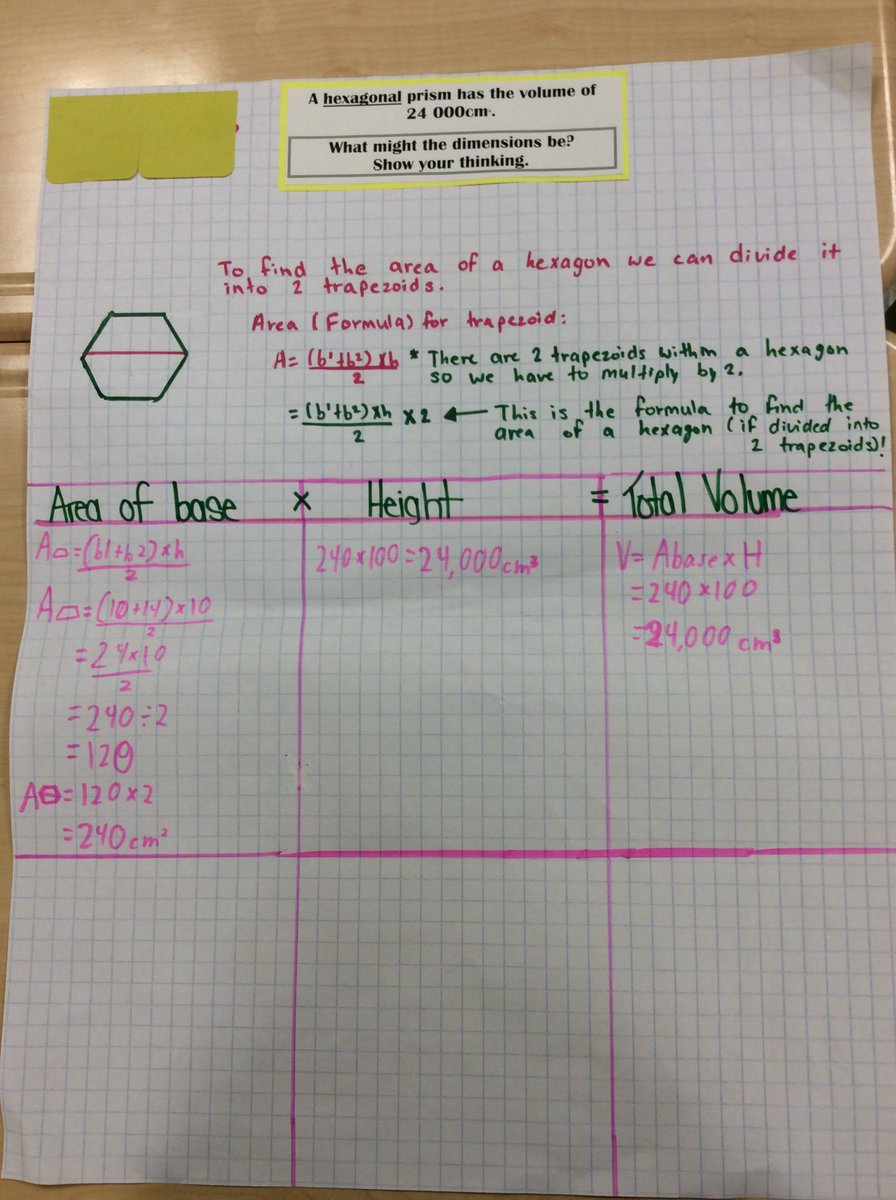 A hexagonal prism has the volume of
24 000cm³.
What might the dimensions be?
Show your thinking.
To find the area of a hexagon we can divide it
into 2 trapezoids.
Area (Formula) for trapezoid:
A= (b¹+b²)xh / 2 * There are 2 trapezoids within a hexagon
so we have to multiply by 2.
= (b¹+b²)xh / 2 x2 ← This is the formula to find the
area of a hexagon (if divided into
2 trapezoids)!
Area of base x Height = Total Volume
A▱=(b1+b2)xh / 2
A▱=(10+14)x10 / 2
=24x10 / 2
=240÷2
=120
A⬡=120x2
=240cm²
240x100=24,000cm³
V=AbasexH
=240x100
=24,000 cm³